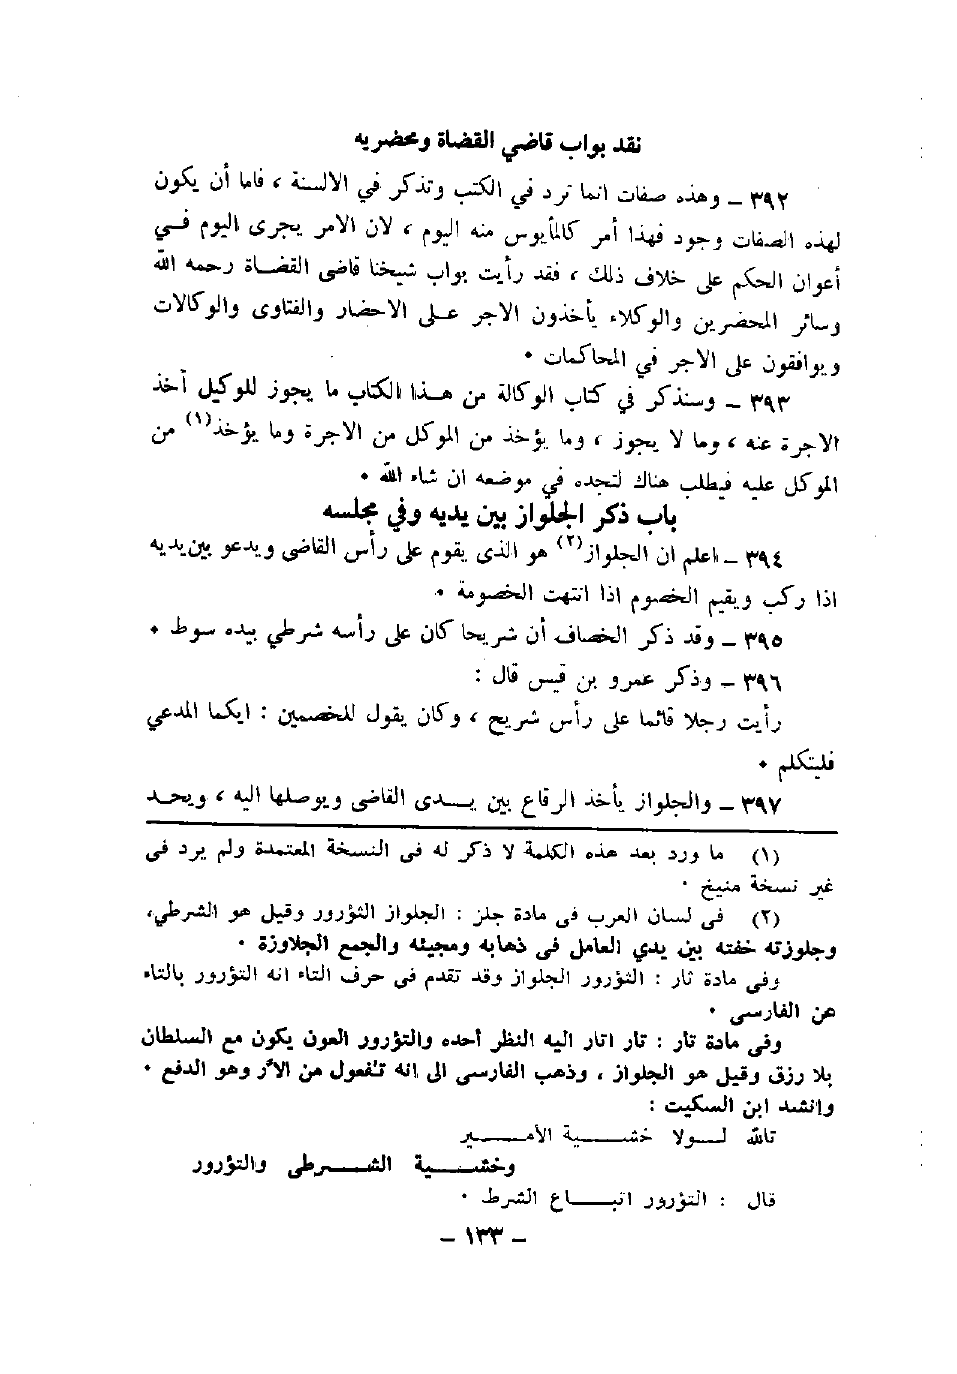 نقد بواب قاضي القضاة ومحضريه
٣٩٢ ــ وهذه صفات انما ترد في الكتب وتذكر في الالسنة ، فاما أن يكون
لهذه الصفات وجود فهذا أمر كالمأيوس منه اليوم ، لان الامر يجرى اليوم فــي
أعوان الحكم على خلاف ذلك ، فقد رأيت بواب شيخنا قاضى القضــاة رحمه الله
وسائر المحضرين والوكلاء يأخذون الاجر علــى الاحضار والفتاوى والوكالات
ويوافقون على الاجر في المحاكمات ٠
٣٩٣ ــ وسنذكر في كتاب الوكالة من هــذا الكتاب ما يجوز للوكيل أخذ
الاجرة عنه ، وما لا يجوز ، وما يؤخذ من الموكل من الاجرة وما يؤخذ(١) من
الموكل عليه فيطلب هناك لتجده في موضعه ان شاء الله ٠
باب ذكر الجلواز بين يديه وفي مجلسه
٣٩٤ ــ اعلم ان الجلواز(٢) هو الذى يقوم على رأس القاضى ويدعو بين يديه
اذا ركب ويقيم الخصوم اذا انتهت الخصومة ٠
٣٩٥ ــ وقد ذكر الخصاف أن شريحا كان على رأسه شرطي بيده سوط ٠
٣٩٦ ــ وذكر عمرو بن قيس قال :
رأيت رجلا قائما على رأس شريح ، وكان يقول للخصمين : ايكما المدعي
فليتكلم ٠
٣٩٧ ــ والجلواز يأخذ الرقاع بين يــدى القاضى ويوصلها اليه ، ويحــد
(١) ما ورد بعد هذه الكلمة لا ذكر له فى النسخة المعتمدة ولم يرد فى
غير نسخة منيخ ٠
(٢) فى لسان العرب فى مادة جلز : الجلواز الثؤرور وقيل هو الشرطي،
وجلوزته خفته بين يدي العامل فى ذهابه ومجيئه والجمع الجلاوزة ٠
وفى مادة ثار : الثؤرور الجلواز وقد تقدم فى حرف التاء انه التؤرور بالتاء
عن الفارسى ٠
وفى مادة تأر : تار اتار اليه النظر أحده والتؤرور العون يكون مع السلطان
بلا رزق وقيل هو الجلواز ، وذهب الفارسى الى انه تفعول من الأر وهو الدفع ٠
وانشد ابن السكيت :
تالله لــولا خشــــية الأمــــير
وخشــــية الشــرطى والتؤرور
قال : التؤرور اتبــــاع الشرط ٠
ــ ١٣٣ ــ